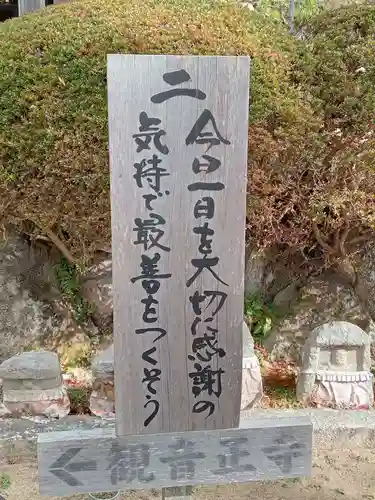 二 今日一日を大切に感謝の
気持で最善をつくそう
←観音正寺